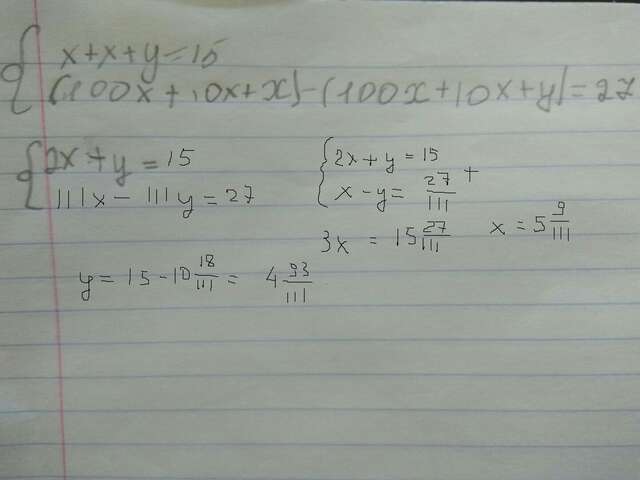 { x + x + y = 15
(100x + 10x + x) - (100x + 10x + y) = 27
{ 2x + y = 15
111x - 111y = 27
{ 2x + y = 15
x - y = 27/111 +
3x = 15 27/111
x = 5 9/111
y = 15 - 10 18/111 = 4 93/111